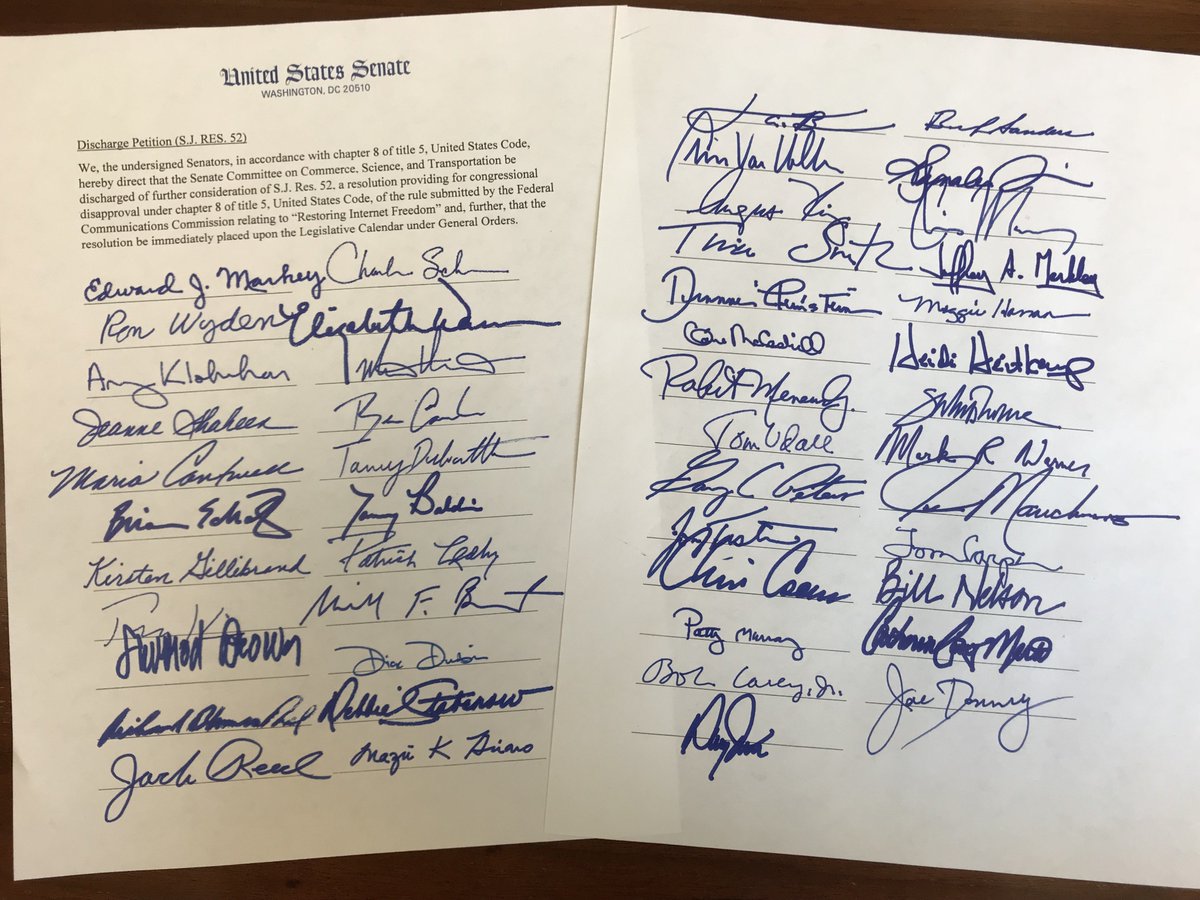 United States Senate
WASHINGTON, DC 20510
Discharge Petition (S.J. RES. 52)
We, the undersigned Senators, in accordance with chapter 8 of title 5, United States Code,
hereby direct that the Senate Committee on Commerce, Science, and Transportation be
discharged of further consideration of S.J. Res. 52, a resolution providing for congressional
disapproval under chapter 8 of title 5, United States Code, of the rule submitted by the Federal
Communications Commission relating to “Restoring Internet Freedom” and, further, that the
resolution be immediately placed upon the Legislative Calendar under General Orders.
Edward J. Markey
Ron Wyden Elizabeth
Amy Klobuchar
Jeanne Shaheen Ben
Maria Cantwell Tammy Duckworth
Brian Schatz Tammy Baldwin
Kirsten Gillibrand Patrick Leahy
F.
Sherrod Brown Dick Durbin
Richard Blumenthal Debbie Stabenow
Jack Reed Mazie K Hirono
Chris Van Hollen
Angus King
Tina Smith Jeffrey A. Merkley
Dianne Feinstein Maggie Hassan
Heidi Heitkamp
Robert Menendez
Tom Udall Mark R Warner
Gary C Peters Manchin
Tom Carper
Chris Coons Bill Nelson
Patty Murray
Bob Casey, Jr. Joe Donnelly